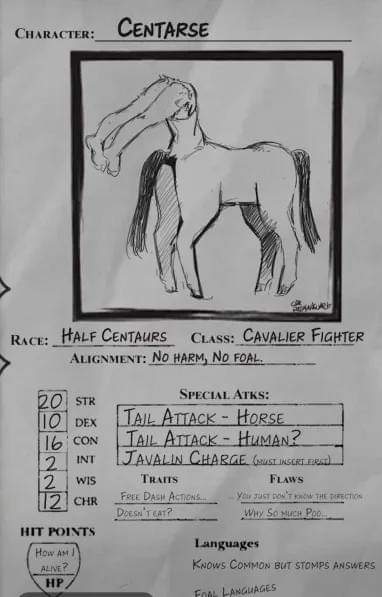 CHARACTER: CENTARSE
RACE: HALF CENTAURS CLASS: CAVALIER FIGHTER
ALIGNMENT: NO HARM, NO FOAL.
SPECIAL ATKS:
20 STR
10 DEX
16 CON
2 INT
2 WIS
12 CHR
TAIL ATTACK - HORSE
TAIL ATTACK - HUMAN?
JAVALIN CHARGE (MUST INSERT FIRST)
TRAITS
FREE DASH ACTIONS...
DOESN'T EAT?
FLAWS
... YOU JUST DON'T KNOW THE DIRECTION
WHY SO MUCH POO...
HIT POINTS
HOW AM I
ALIVE?
HP
Languages
KNOWS COMMON BUT STOMPS ANSWERS
FOAL LANGUAGES